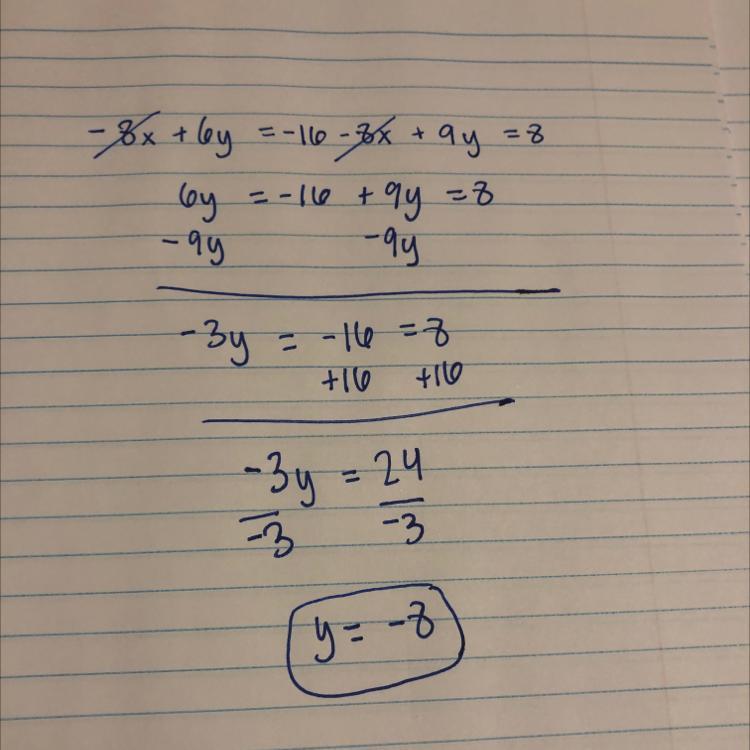 -8x + 6y = -16 -8x + 9y = 8
6y = -16 + 9y = 8
-9y -9y
-3y = -16 = 8
+16 +16
-3y = 24
-3 -3
y = -8